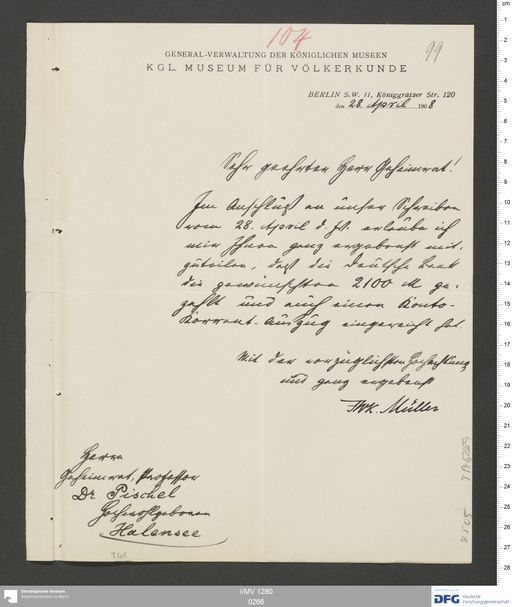 104
99
GENERAL-VERWALTUNG DER KÖNIGLICHEN MUSEEN
KGL. MUSEUM FÜR VÖLKERKUNDE
BERLIN S.W. 11, Königgrätzer Str. 120
den 28. April 1908
Sehr geehrter Herr Geheimrat!
Im Anschluß an unser Schreiben
vom 28. April d. Js. erlaube ich
mir Ihnen ganz ergebenst mit-
zuteilen, daß die Deutsche Bank
die gewünschten 2100 M ge-
zahlt und auch einen Konto-
Korrent-Auszug eingereicht hat.
Mit der vorzüglichsten Hochachtung
und ganz ergebenst
F.W.K. Müller
Herrn
Geheimrat, Professor
Dr Pischel
Hochwohlgeboren
Halensee
261
Ethnologisches Museum
Staatliche Museen zu Berlin
I/MV 1260
0266
DFG Deutsche
Forschungsgemeinschaft